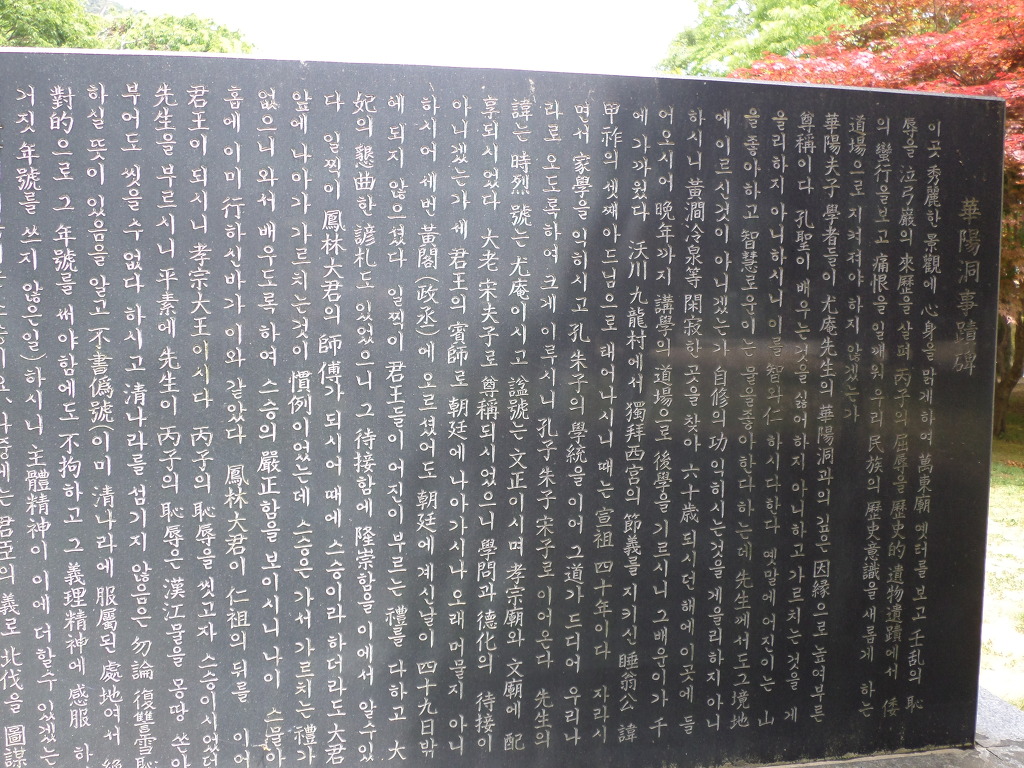 華陽洞事蹟碑
이곳 秀麗한 景觀에 心身을 맑게하여 萬東廟 옛터를 보고 壬亂의 恥
辱을 泣弓巖의 來歷을 살펴 丙子의 屈辱을 歷史的 遺物遺蹟에서 倭
의 蠻行을보고 痛恨을 일깨워 우리 民族의 歷史意識을 새롭게 하는
道場으로 지켜져야 하지 않겠는가
華陽夫子 學者들이 尤庵先生의 華陽洞과의 깊은 因緣으로 높여부른
尊稱이다 孔聖이 배우는것을 싫어하지 아니하고 가르치는것을 게
을리하지 아니하시니 이를 智와 仁 하시다한다 옛말에 어진이는 山
을좋아하고 智慧로운이는 물을좋아한다하는데 先生께서도 그境地
에 이르신것이 아니겠는가 自修의 功 익히시는것을 게을리하지 아니
하시니 黃澗冷泉等 閑寂한곳을 찾아 六十歲 되시던 해에 이곳에 들
어오시어 晩年까지 講學의 道場으로 後學을 기르시니 그배운이가 千
에 가까웠다 沃川 九龍村에서 獨拜西宮의 節義를 지키신 睡翁公 諱
甲祚의 셋째아드님으로 태어나시니 때는 宣祖 四十年이다 자라시
면서 家學을 익히시고 孔 朱子의 學統을 이어 그道가 드디어 우리나
라로 오도록하여 크게 이루시니 孔子 朱子 宋子로 이어온다 先生의
諱는 時烈 號는 尤庵이시고 諡號는 文正이시며 孝宗廟와 文廟에 配
享되시었다 大老 宋夫子로 尊稱되시었으니 學問과 德化의 待接이
아니겠는가 세 君王의 賓師로 朝廷에 나아가시나 오래 머물지 아니
하시어 세번 黃閣(政丞)에 오르셨어도 朝廷에 계신날이 四十九日밖
에 되지 않으셨다 일찍이 君王들이 어진이 부르는 禮를 다하고 大
妃의 懇曲한 諺札도 있었으니 그 待接함에 隆崇함을 이에서 알수있
다 일찍이 鳳林大君의 師傅가 되시어 때에 스승이라 하더라도 大君
앞에 나아가 가르치는것이 慣例이었는데 스승은 가서 가르치는 禮가
없으니 와서 배우도록 하여 스승의 嚴正함을 보이시니 나이 스물아
홉에 이미 行하신바가 이와 같았다 鳳林大君이 仁祖의 뒤를 이어
君王이 되시니 孝宗大王이시다 丙子의 恥辱을 씻고자 스승이시었던
先生을 부르시니 平素에 先生이 丙子의 恥辱은 漢江물을 몽땅 쏟아
부어도 씻을수 없다 하시고 淸나라를 섬기지 않음은 勿論 復讐雪恥
하실 뜻이 있음을 알고 不書僞號(이미 淸나라에 服屬된 處地여서 絶
對的으로 그 年號를 써야함에도 不拘하고 그 義理精神에 感服 하
거짓 年號를 쓰지 않은일)하시니 主體精神이 이에 더할수 있겠는
君臣의 義로 北伐을 圖謀